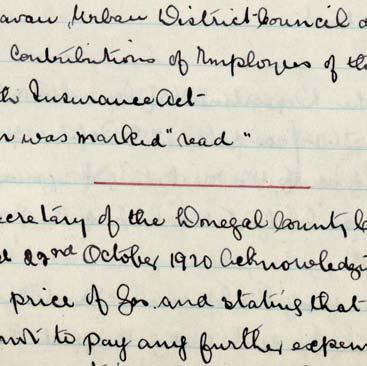 avan Urban District Council
Contributions of Employees of th
th Insurance Act
r was marked "read"
ecretary of the Donegal County C
22nd October 1920 Acknowledgi
price of Gas and stating that
not to pay any further expen